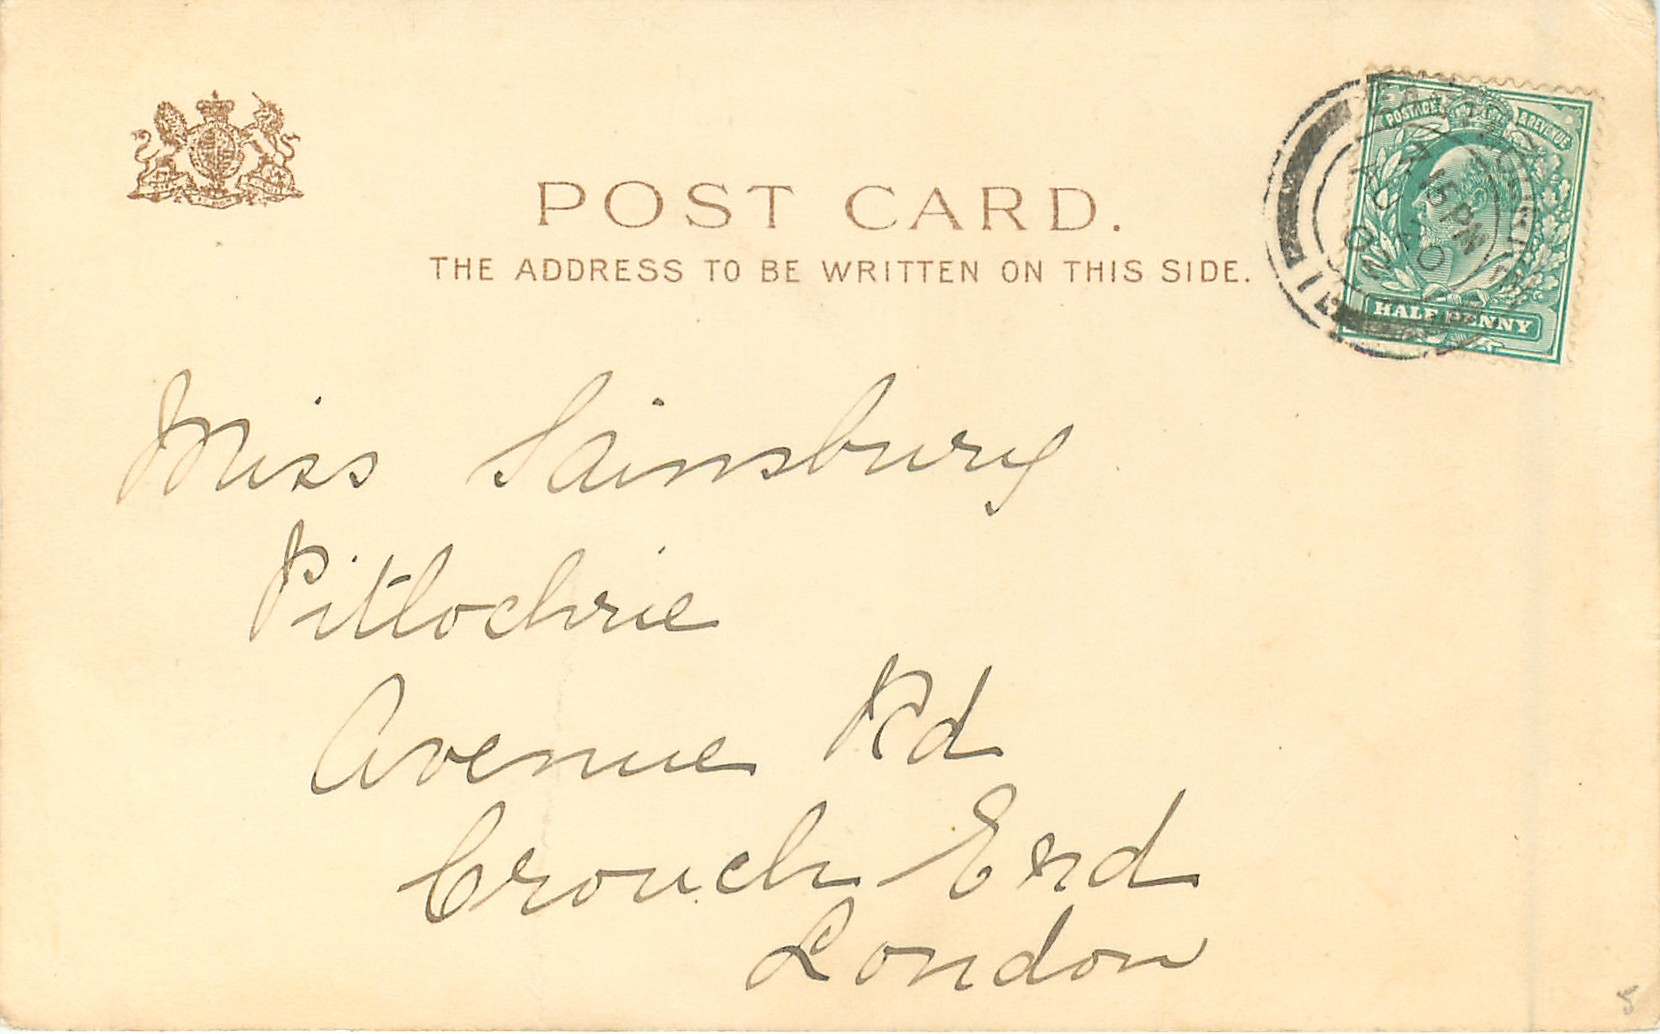 POST CARD.
THE ADDRESS TO BE WRITTEN ON THIS SIDE.
POSTAGE & REVENUE
HALFPENNY
Miss Sainsbury
Pitlochrie
Avenue Rd
Crouch End
London
5